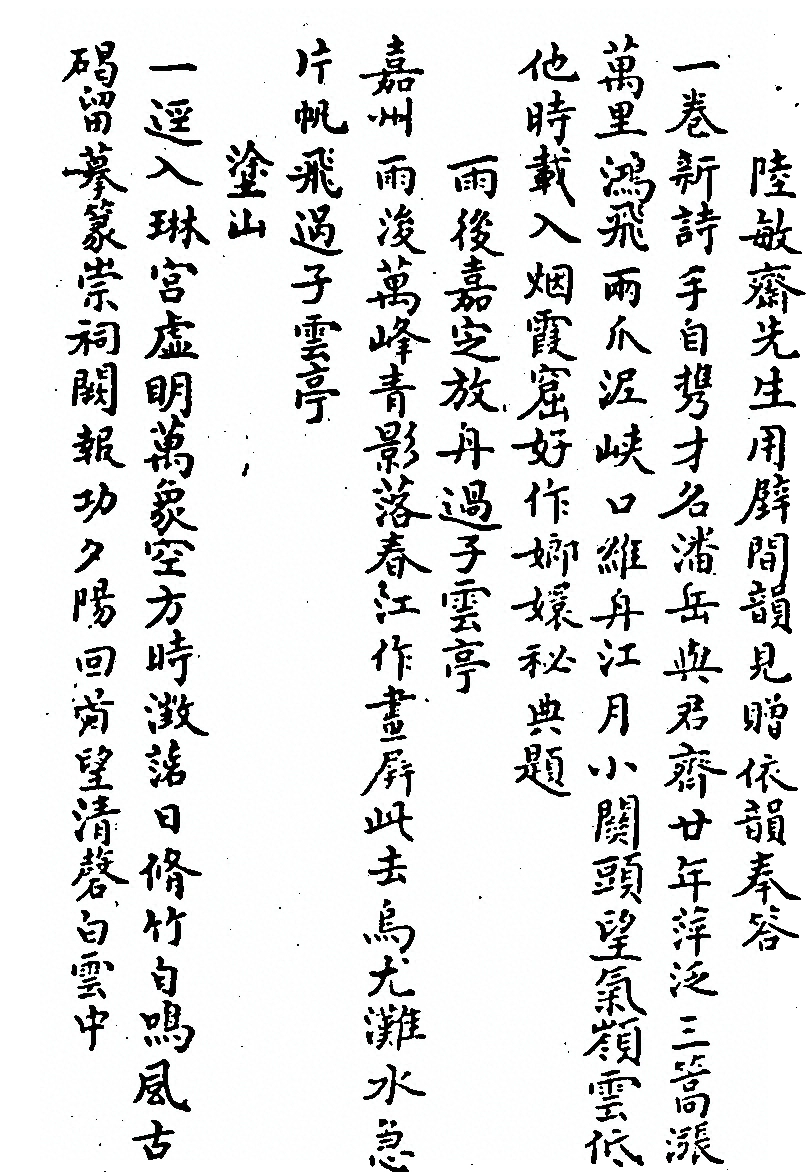 陸敏齋先生用壁間韻見贈依韻奉答
一卷新詩手自携才名潘岳與君齊廿年萍泛三篙漲
萬里鴻飛兩爪泥峽口維舟江月小關頭望氣嶺雲低
他時載入烟霞窟好作嫏嬛秘典題
雨後嘉定放舟過子雲亭
嘉州雨後萬峰青影落春江作畫屏此去烏尤灘水急
片帆飛過子雲亭
塗山
一逕入琳宮虛明萬象空方時澂日脩竹自鳴風古
碣留摹篆崇祠闕報功夕陽回首望清磬白雲中